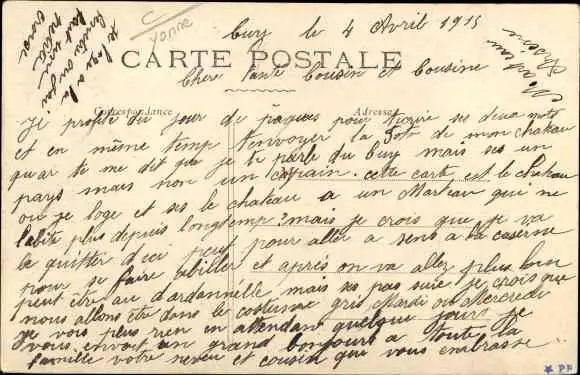 Cuzy le 4 Avril 1915
Yonne
CARTE POSTALE
Chère Tante Cousin et Cousine
Correspondance
Adresse
Je profite du jour de pâques pour t'ecrire ses deux mots
et en même temp t'envoyer la Foto de mon chateau
quar tu me dit que je te parle du Cuy mais ses un
pays mais non un copain. cette carte est le chateau
ou je loge et ses le chateau a un Marteau qui ne
labite plus depuis longtemp? mais je crois que je va
le quitter d'ici peut pour aller a sens a la caserne
pour se faire abiller et après on va allez plus loin
peut être au dardannelle mais ses pas sure je crois que
nous allons être dans le costume gris Mardi ou Mercredi
je vois plus rien en atendant quelque jours je
vous envoit un grand bonjours a toute la
famille votre neveu et cousin que vous embrasse
je loge a la
croix
PF